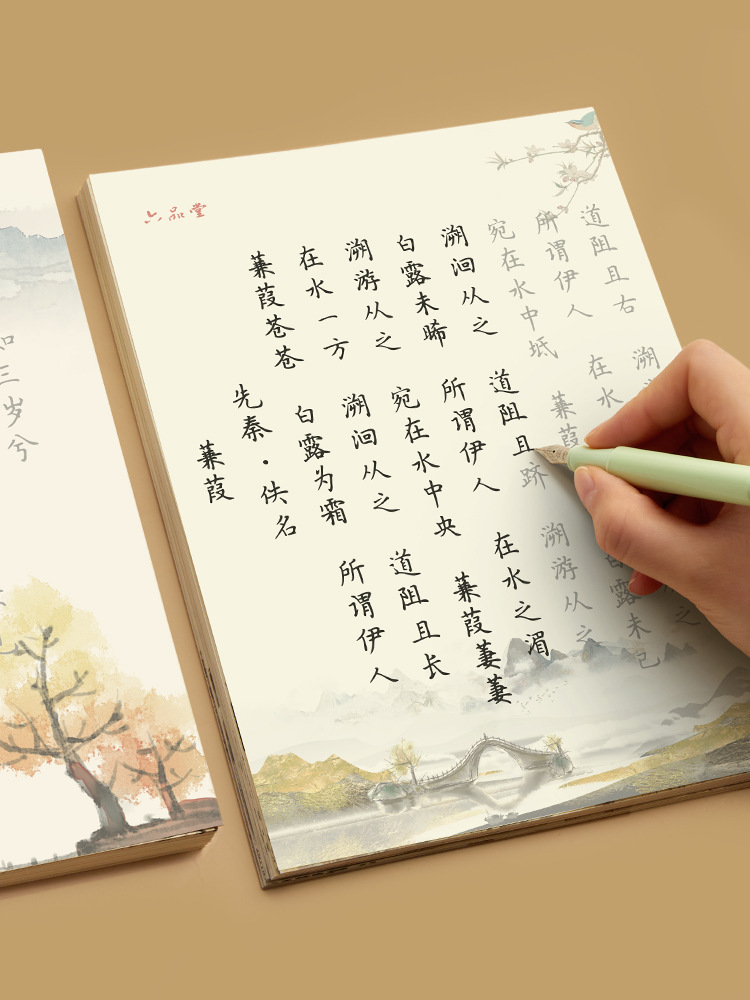 三岁兮
六品堂
蒹葭
先秦·佚名
蒹葭苍苍 白露为霜 所谓伊人
在水一方 溯洄从之 道阻且长
溯游从之 宛在水中央 蒹葭萋萋
白露未晞 所谓伊人 在水之湄
溯洄从之 道阻且跻 溯游从之
宛在水中坻 蒹葭 白露未已
所谓伊人 在水 之
道阻且右 溯